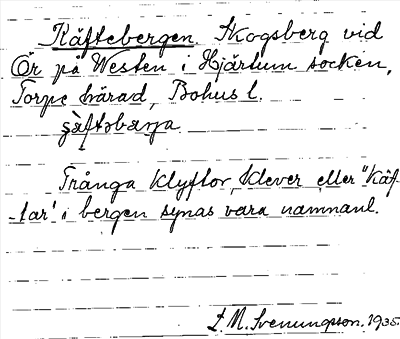 Käftebergen. Skogsberg vid
Ör på Westen i Hjärtum socken,
Torpe härad, Bohus l.
Trånga klyftor, klever eller "Käf-
-tar" i bergen synas vara namnanl.
L M. Svenungsson. 1935.